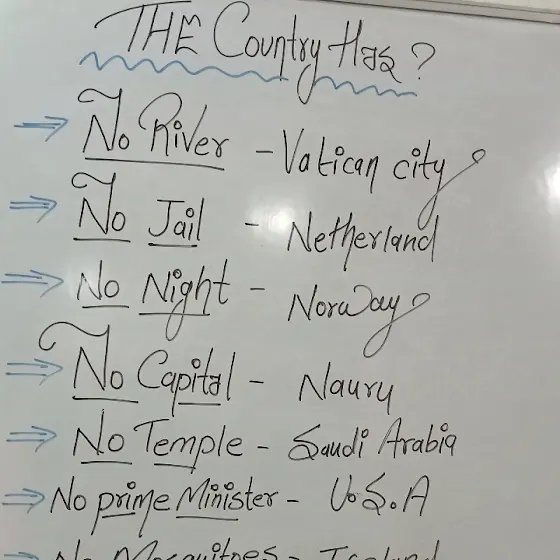 THE Country Has ?
⇒ No River - Vatican city
⇒ No Jail - Netherland
⇒ No Night - Norway
⇒ No Capital - Naury
⇒ No Temple - Saudi Arabia
⇒ No prime Minister - U.S.A
⇒ No Mosquitoes - Iceland